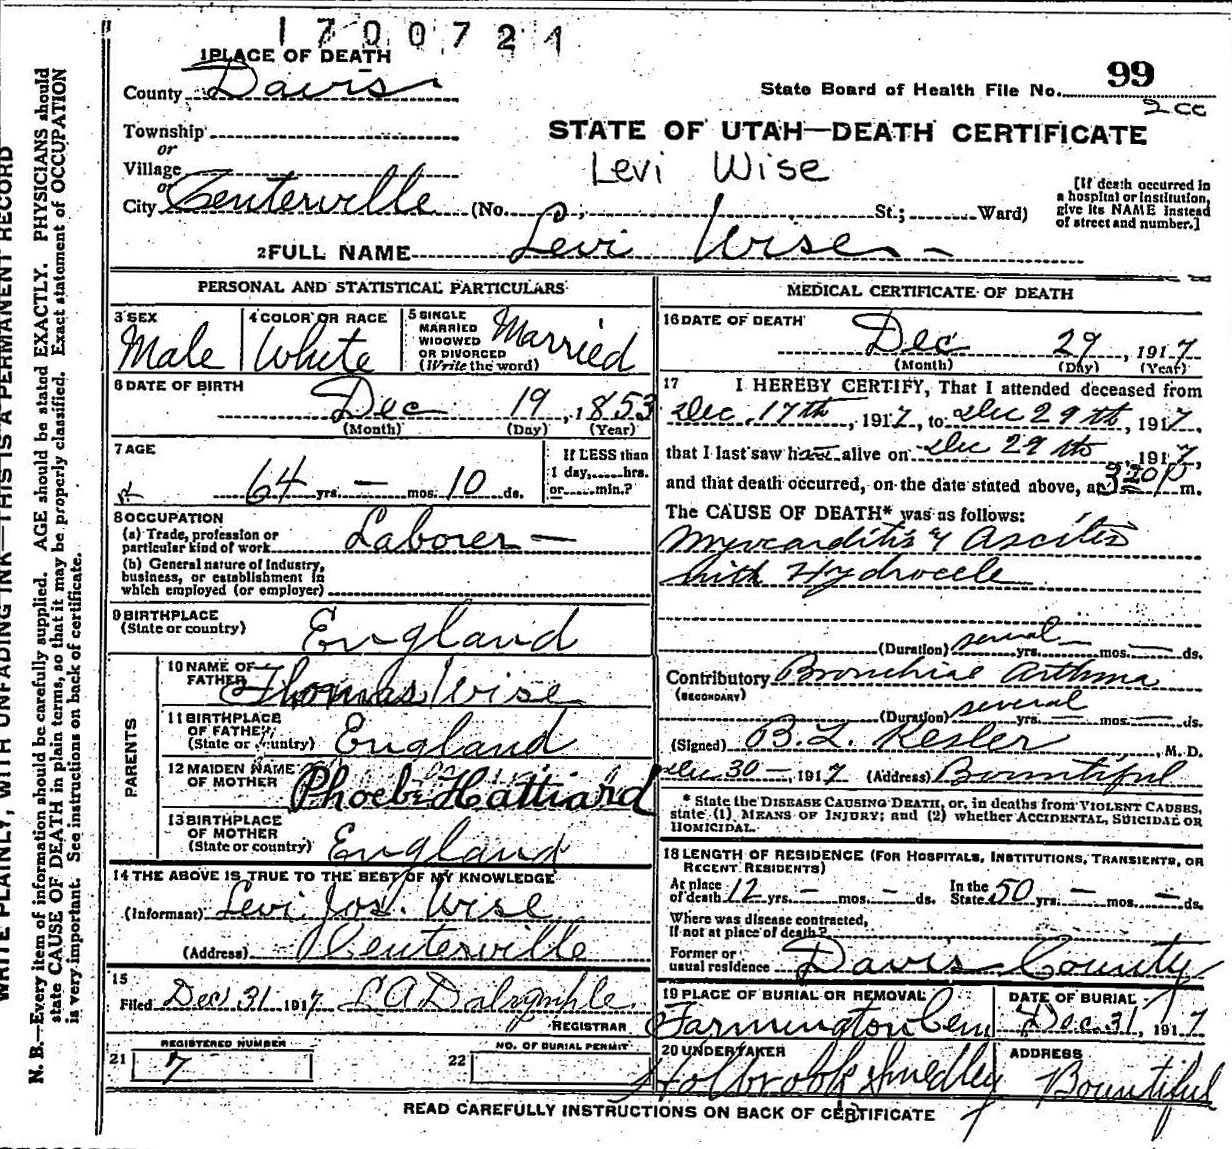 1700721
1 PLACE OF DEATH
County Davis
State Board of Health File No. 99
2cc
Township
or
Village
or
City Centerville (No. St.; Ward)
STATE OF UTAH—DEATH CERTIFICATE
Levi Wise
[If death occurred in
a hospital or institution,
give its NAME instead
of street and number.]
2 FULL NAME Levi Wise
PERSONAL AND STATISTICAL PARTICULARS
3 SEX
Male
4 COLOR OR RACE
White
5 SINGLE
MARRIED
WIDOWED
OR DIVORCED
(Write the word)
Married
6 DATE OF BIRTH
Dec 19, 1853
(Month) (Day) (Year)
7 AGE
64 yrs. — mos. 10 ds.
If LESS than
1 day, hrs.
or min.?
8 OCCUPATION
(a) Trade, profession or
particular kind of work Laborer —
(b) General nature of Industry,
business, or establishment in
which employed (or employer)
9 BIRTHPLACE
(State or country) England
PARENTS
10 NAME OF
FATHER Thomas Wise
11 BIRTHPLACE
OF FATHER
(State or country) England
12 MAIDEN NAME
OF MOTHER Phoebe Hattiard
13 BIRTHPLACE
OF MOTHER
(State or country) England
14 THE ABOVE IS TRUE TO THE BEST OF MY KNOWLEDGE
(Informant) Levi Jos. Wise
(Address) Centerville
15
Filed Dec 31 1917 L A Dalrymple
REGISTRAR
21 REGISTERED NUMBER
7
22 NO. OF BURIAL PERMIT
MEDICAL CERTIFICATE OF DEATH
16 DATE OF DEATH
Dec 29, 1917
(Month) (Day) (Year)
17 I HEREBY CERTIFY, That I attended deceased from
Dec 17th, 1917, to Dec 29th, 1917,
that I last saw h alive on Dec 29th, 1917,
and that death occurred, on the date stated above, at 3:20 P m.
The CAUSE OF DEATH* was as follows:
Myocarditis & Ascites
with Hydrocele
(Duration) several yrs. — mos. — ds.
Contributory Bronchial Asthma
(SECONDARY)
(Duration) several yrs. — mos. — ds.
(Signed) B. L. Kesler, M. D.
Dec 30 —, 1917 (Address) Bountiful
* State the DISEASE CAUSING DEATH, or, in deaths from VIOLENT CAUSES,
state (1) MEANS OF INJURY; and (2) whether ACCIDENTAL, SUICIDAL OR
HOMICIDAL.
18 LENGTH OF RESIDENCE (FOR HOSPITALS, INSTITUTIONS, TRANSIENTS, OR
RECENT RESIDENTS)
At place
of death 12 yrs. — mos. — ds.
In the
State 50 yrs. — mos. — ds.
Where was disease contracted,
If not at place of death?
Former or
usual residence Davis County
19 PLACE OF BURIAL OR REMOVAL
Farmington Cem
DATE OF BURIAL
Dec. 31, 1917
20 UNDERTAKER
Holbrook Smedley
ADDRESS
Bountiful
READ CAREFULLY INSTRUCTIONS ON BACK OF CERTIFICATE
WRITE PLAINLY, WITH UNFADING INK—THIS IS A PERMANENT RECORD
N. B.—Every item of information should be carefully supplied. AGE should be stated EXACTLY. PHYSICIANS should
state CAUSE OF DEATH in plain terms, so that it may be properly classified. Exact statement of OCCUPATION
is very important. See instructions on back of certificate.